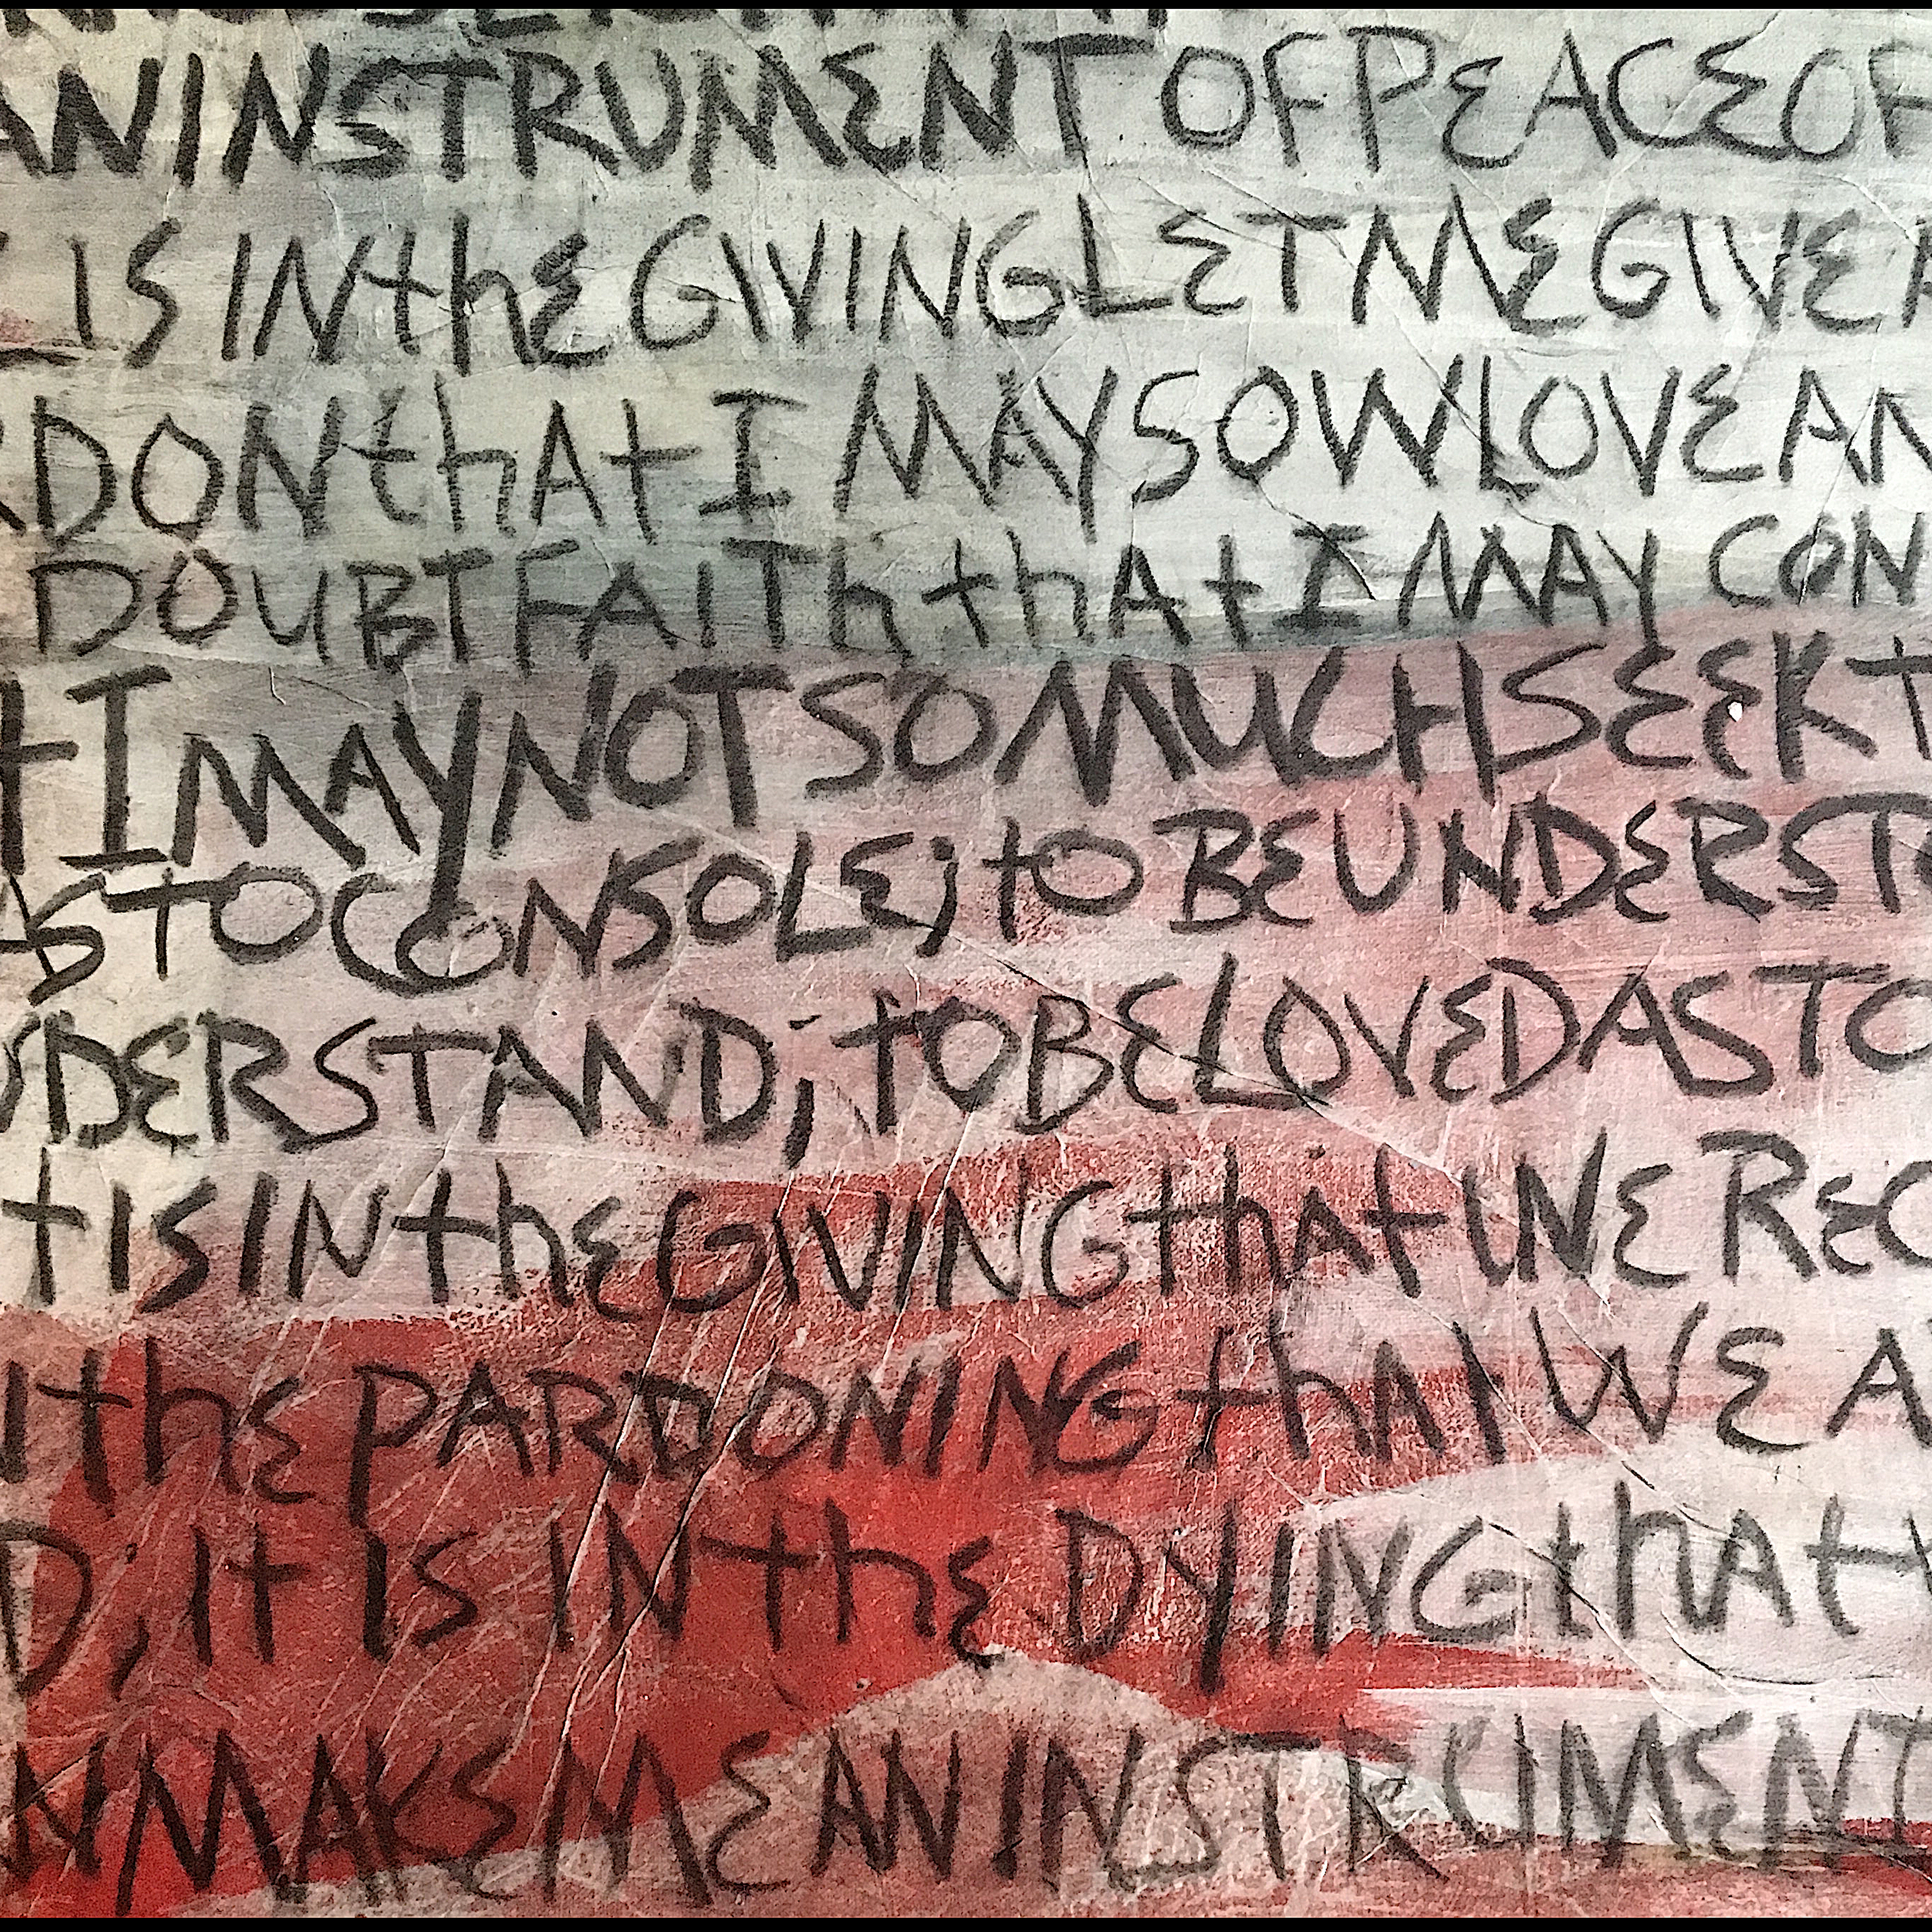 AN INSTRUMENT OF PEACE OF
IS IN thE GIVING LET ME GIVE
DON thAt I MAY SOW LOVE AN
DOUBT FAITh thAt I MAY CON
I MAY NOT SO MUCH SEEK t
AS TO CONSOLE; tO BE UNDERST
DERSTAND; tO BE LOVED AS TO
t IS IN thE GIVING thAt WE REC
thE PARDONING thAt WE A
D, It IS IN thE DYING thAt
MAKE ME AN INSTRUMENT